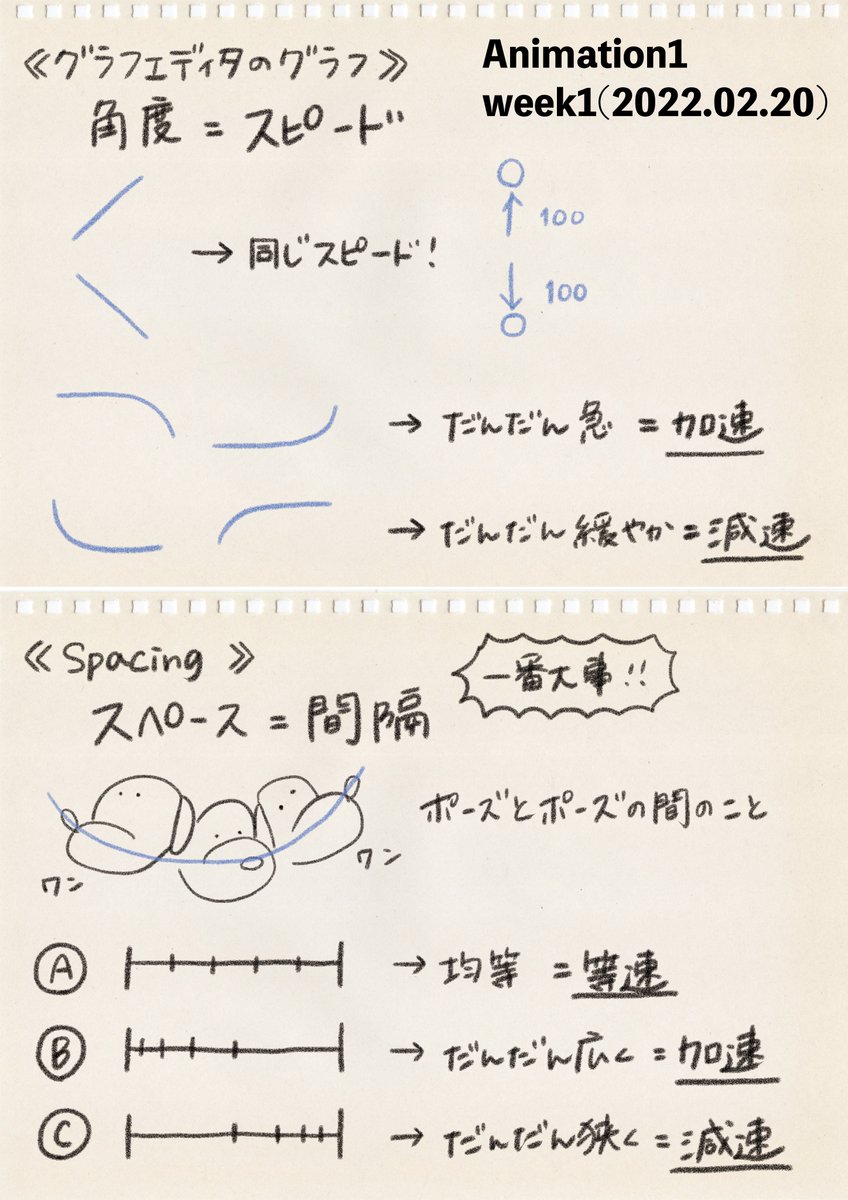 ≪グラフエディタのグラフ≫
Animation1
week1(2022.02.20)
角度 = スピード
→ 同じスピード!
100
100
→ だんだん急 = 加速
→ だんだん緩やか = 減速
≪ Spacing ≫
一番大事!!
スペース = 間隔
ポーズとポーズの間のこと
ワン
ワン
A → 均等 = 等速
B → だんだん広く = 加速
C → だんだん狭く = 減速